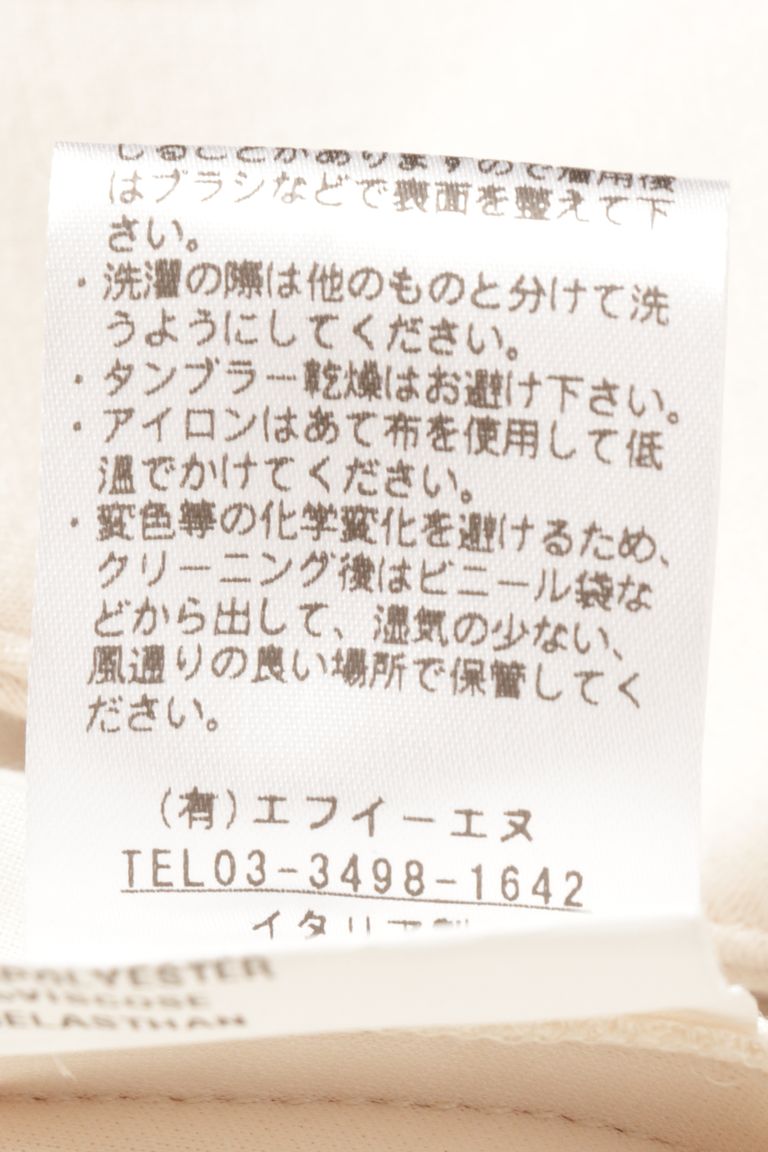 じることがありますので着用後
はブラシなどで表面を整えて下
さい。
・洗濯の際は他のものと分けて洗
うようにしてください。
・タンブラー乾燥はお避け下さい。
・アイロンはあて布を使用して低
温でかけてください。
・変色等の化学変化を避けるため、
クリーニング後はビニール袋な
どから出して、湿気の少ない、
風通りの良い場所で保管してく
ださい。
(有)エフイーエヌ
TEL03-3498-1642
イタリア製
POLYESTER
VISCOSE
ELASTHAN